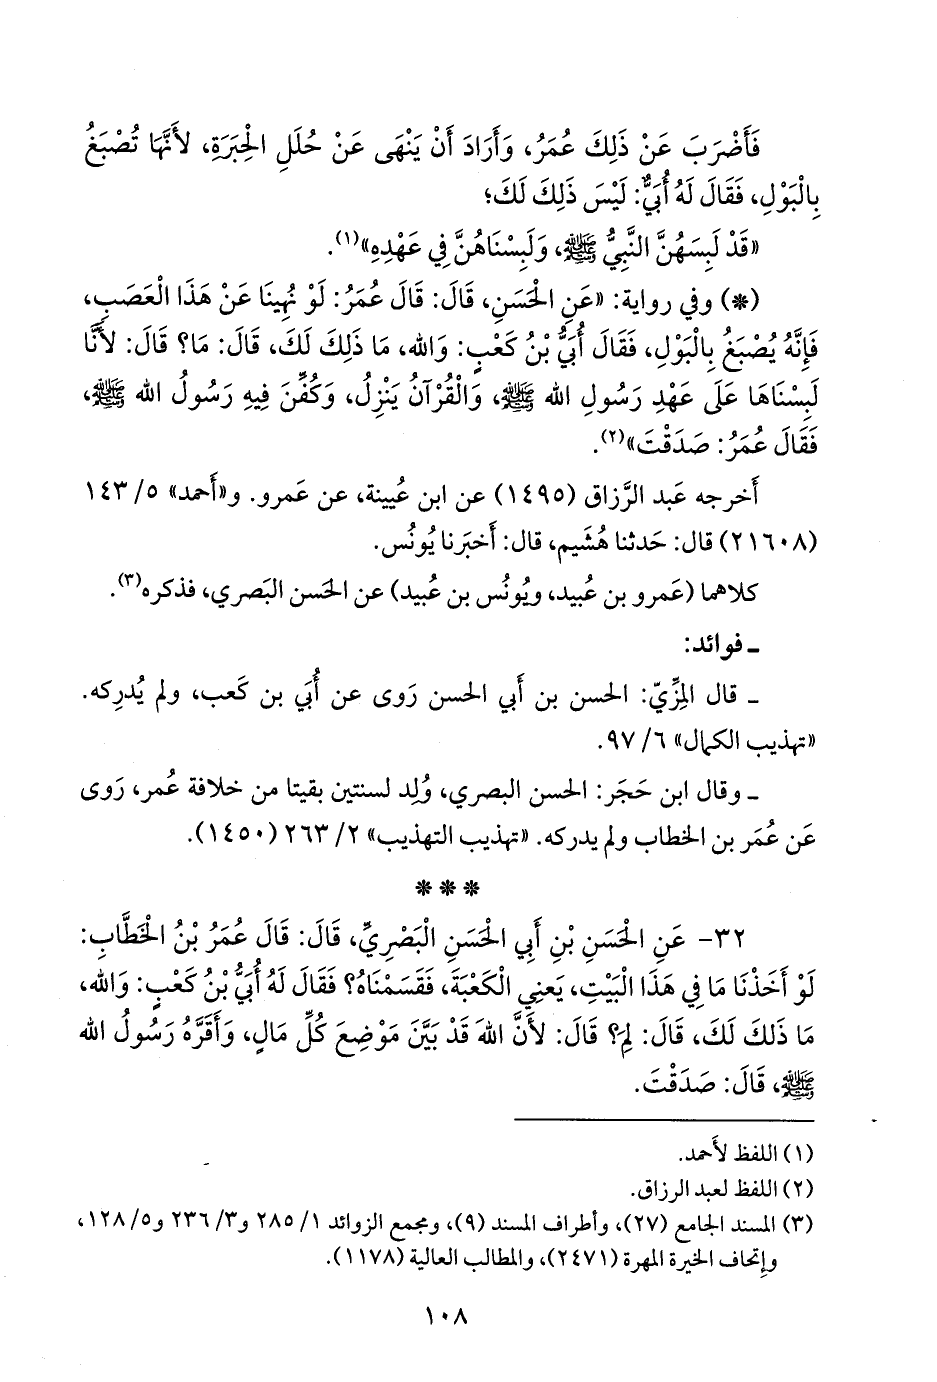 فَأَضْرَبَ عَنْ ذَلِكَ عُمَرُ، وَأَرَادَ أَنْ يَنْهَى عَنْ حُلَلِ الْحِبَرَةِ، لأَنَّهَا تُصْبَغُ
بِالْبَوْلِ، فَقَالَ لَهُ أُبَيٌّ: لَيْسَ ذَلِكَ لَكَ؛
«قَدْ لَبِسَهُنَّ النَّبِيُّ ﷺ، وَلَبِسْنَاهُنَّ فِي عَهْدِهِ»(١).
(*) وفي رواية: «عَنِ الْحَسَنِ، قَالَ: قَالَ عُمَرُ: لَوْ نُهِينَا عَنْ هَذَا الْعَصَبِ،
فَإِنَّهُ يُصْبَغُ بِالْبَوْلِ، فَقَالَ أُبَيُّ بْنُ كَعْبٍ: وَالله، مَا ذَلِكَ لَكَ، قَالَ: مَا؟ قَالَ: لأَنَّا
لَبِسْنَاهَا عَلَى عَهْدِ رَسُولِ الله ﷺ، وَالْقُرْآنُ يَنْزِلُ، وَكُفِّنَ فِيهِ رَسُولُ الله ﷺ،
فَقَالَ عُمَرُ: صَدَقْتَ»(٢).
أَخرجه عَبد الرَّزاق (١٤٩٥) عن ابن عُيينة، عن عَمرو. و«أَحمد» ٥/ ١٤٣
(٢١٦٠٨) قال: حَدثنا هُشَيم، قال: أَخبَرنا يُونُس.
كلاهما (عَمرو بن عُبيد، ويُونُس بن عُبيد) عن الحَسن البَصري، فذكره(٣).
ـ فوائد:
ـ قال المِزِّيّ: الحسن بن أَبي الحسن رَوى عن أُبَي بن كَعب، ولم يُدرِكه.
«تهذيب الكمال» ٦/ ٩٧.
ـ وقال ابن حَجَر: الحسن البصري، وُلِد لسنتين بقيتا من خلافة عُمر، رَوى
عَن عُمَر بن الخطاب ولم يدركه. «تهذيب التهذيب» ٢/ ٢٦٣ (١٤٥٠).
* * *
٣٢- عَنِ الْحَسَنِ بْنِ أَبِي الْحَسَنِ الْبَصْرِيِّ، قَالَ: قَالَ عُمَرُ بْنُ الْخَطَّابِ:
لَوْ أَخَذْنَا مَا فِي هَذَا الْبَيْتِ، يَعنِي الْكَعْبَةَ، فَقَسَمْنَاهُ؟ فَقَالَ لَهُ أُبَيُّ بْنُ كَعْبٍ: وَالله،
مَا ذَلكَ لَكَ، قَالَ: لِمَ؟ قَالَ: لأَنَّ اللهَ قَدْ بَيَّنَ مَوْضِعَ كُلِّ مَالٍ، وَأَقَرَّهُ رَسُولُ الله
ﷺ، قَالَ: صَدَقْتَ.
(١) اللفظ لأحمد.
(٢) اللفظ لعبد الرزاق.
(٣) المسند الجامع (٢٧)، وأطراف المسند (٩)، ومجمع الزوائد ١/ ٢٨٥ و٣/ ٢٣٦ و٥/ ١٢٨،
وإتحاف الخيرة المهرة (٢٤٧١)، والمطالب العالية (١١٧٨).
١٠٨